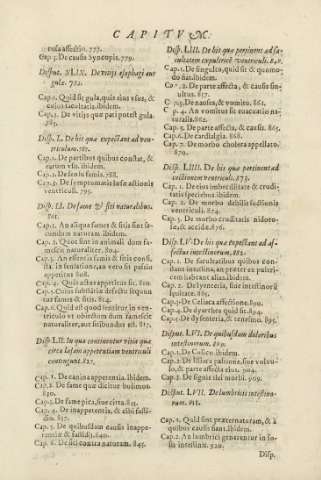 CAPITVM.
tosa affectio. 777.
Cap. 3. De causa Syncopis. 779.
Disput. XLIX. De vitijs œsophagi aut
gulæ. 782.
Cap. 1. Quid sit gula, quis eius vsus, &
cui sit facultatis. Ibidem.
Cap. 2. De vitijs quæ pati potest gula.
783.
Disp. L. De his quæ expectant ad ven-
triculum. 787.
Cap. 1. De partibus quibus constat, &
earum vsu. Ibidem.
Cap. 2. De fontis famis. 788.
Cap. 3. De symptomatis læsæ actionis
ventriculi. 795.
Disp. LI. De fame & siti naturalibus.
Cap. 1. An aliqua fames & sitis sint se-
cundum naturam. ibidem.
Cap. 2. Quot sint in animali dom fa-
mescit naturaliter. 804.
Cap. 3. An essentia famis & sitis consi-
sta in sensatione, an vero sit passio
appetitus 808.
Cap. 4. An sitis appetitus sit. 810.
Cap. 5. Cuius substantiæ defectu sequan
tur fames & sitis. 814.
Cap. 6. Quid est quod sentitur in ven-
triculo vt obiectum dum famescit
naturaliter, aut sitibundus est. 817.
Disp. LII. In qua continentur vitia quæ
circa læsam appetentiam ventriculi
contingunt. 827.
Cap. 1. De canina appetentia. Ibidem.
Cap. 2. De fame quæ dicitur bulimos.
Cap. 3. De fame pica, siue citta.
Cap. 4. De inappetentia, & absti
Cap. 5. De quibusdam causis inappe-
tentiæ & fastidij. 840.
Cap. 6. De siti contra naturam. 845.
Disp. LIII. De his quæ pertinent ad fa-
cultatem expultricē ventriculi.
Cap. 1. De singultu, quid sit & quomo-
do fiat. ibidem.
Cap. 2. De parte affecta, & causis sin-
Cap. 3. De nausea, & vomitu. 861.
Cap. 4. An vomitus sit euacuatio na-
turalis. 862.
Cap. 5. De parte affecta, & causis. 865.
Cap. 6. De cardialgia. 868.
Cap. 7. De morbo cholera appellato.
870.
Disp. LIIII. De his quæ pertinent ad
coctionem ventriculi. 873.
Cap. 1. De eius imbecillitate & crudi-
tatis speciebus ibidem.
Cap. 2. De morbo debilis factionis
ventriculi. 874.
Cap. 3. De cruditatis nidoro-
sæ, & acidæ. 876.
Disp. LV. De his quæ expectant ad af-
fectus intestinorum. 882.
Cap. 1. De facultatibus quibus con-
stant intestina, an præter expultri-
cem habeant alteras. Ibidem.
Cap. 2. De lyenteria, siue intestinorū
læuitate. 885.
Cap. 3. De Cœliaca affectione. 890.
Cap. 4. De dysenteria quid sit. 894.
Cap. 5. De dysenteria, & tenesmo. 895.
Disput. LVI. De quibusdam doloribus
intestinorum. 899.
Cap. 1. De Colico. Ibidem.
Cap. 2. De Iliaca passione, siue voluu-
lo, & parte affecta eius. 904.
Cap. 3. De signis ilei morbi. 909.
Disput. LVII. De lumbricis intestino-
rum. 918.
Cap. 1. Quid sint præternaturam, & à
quibus causis fiant. Ibidem.
Cap. 2. An lumbrici generentur in so-
lis intestinis. 920.
Disp.